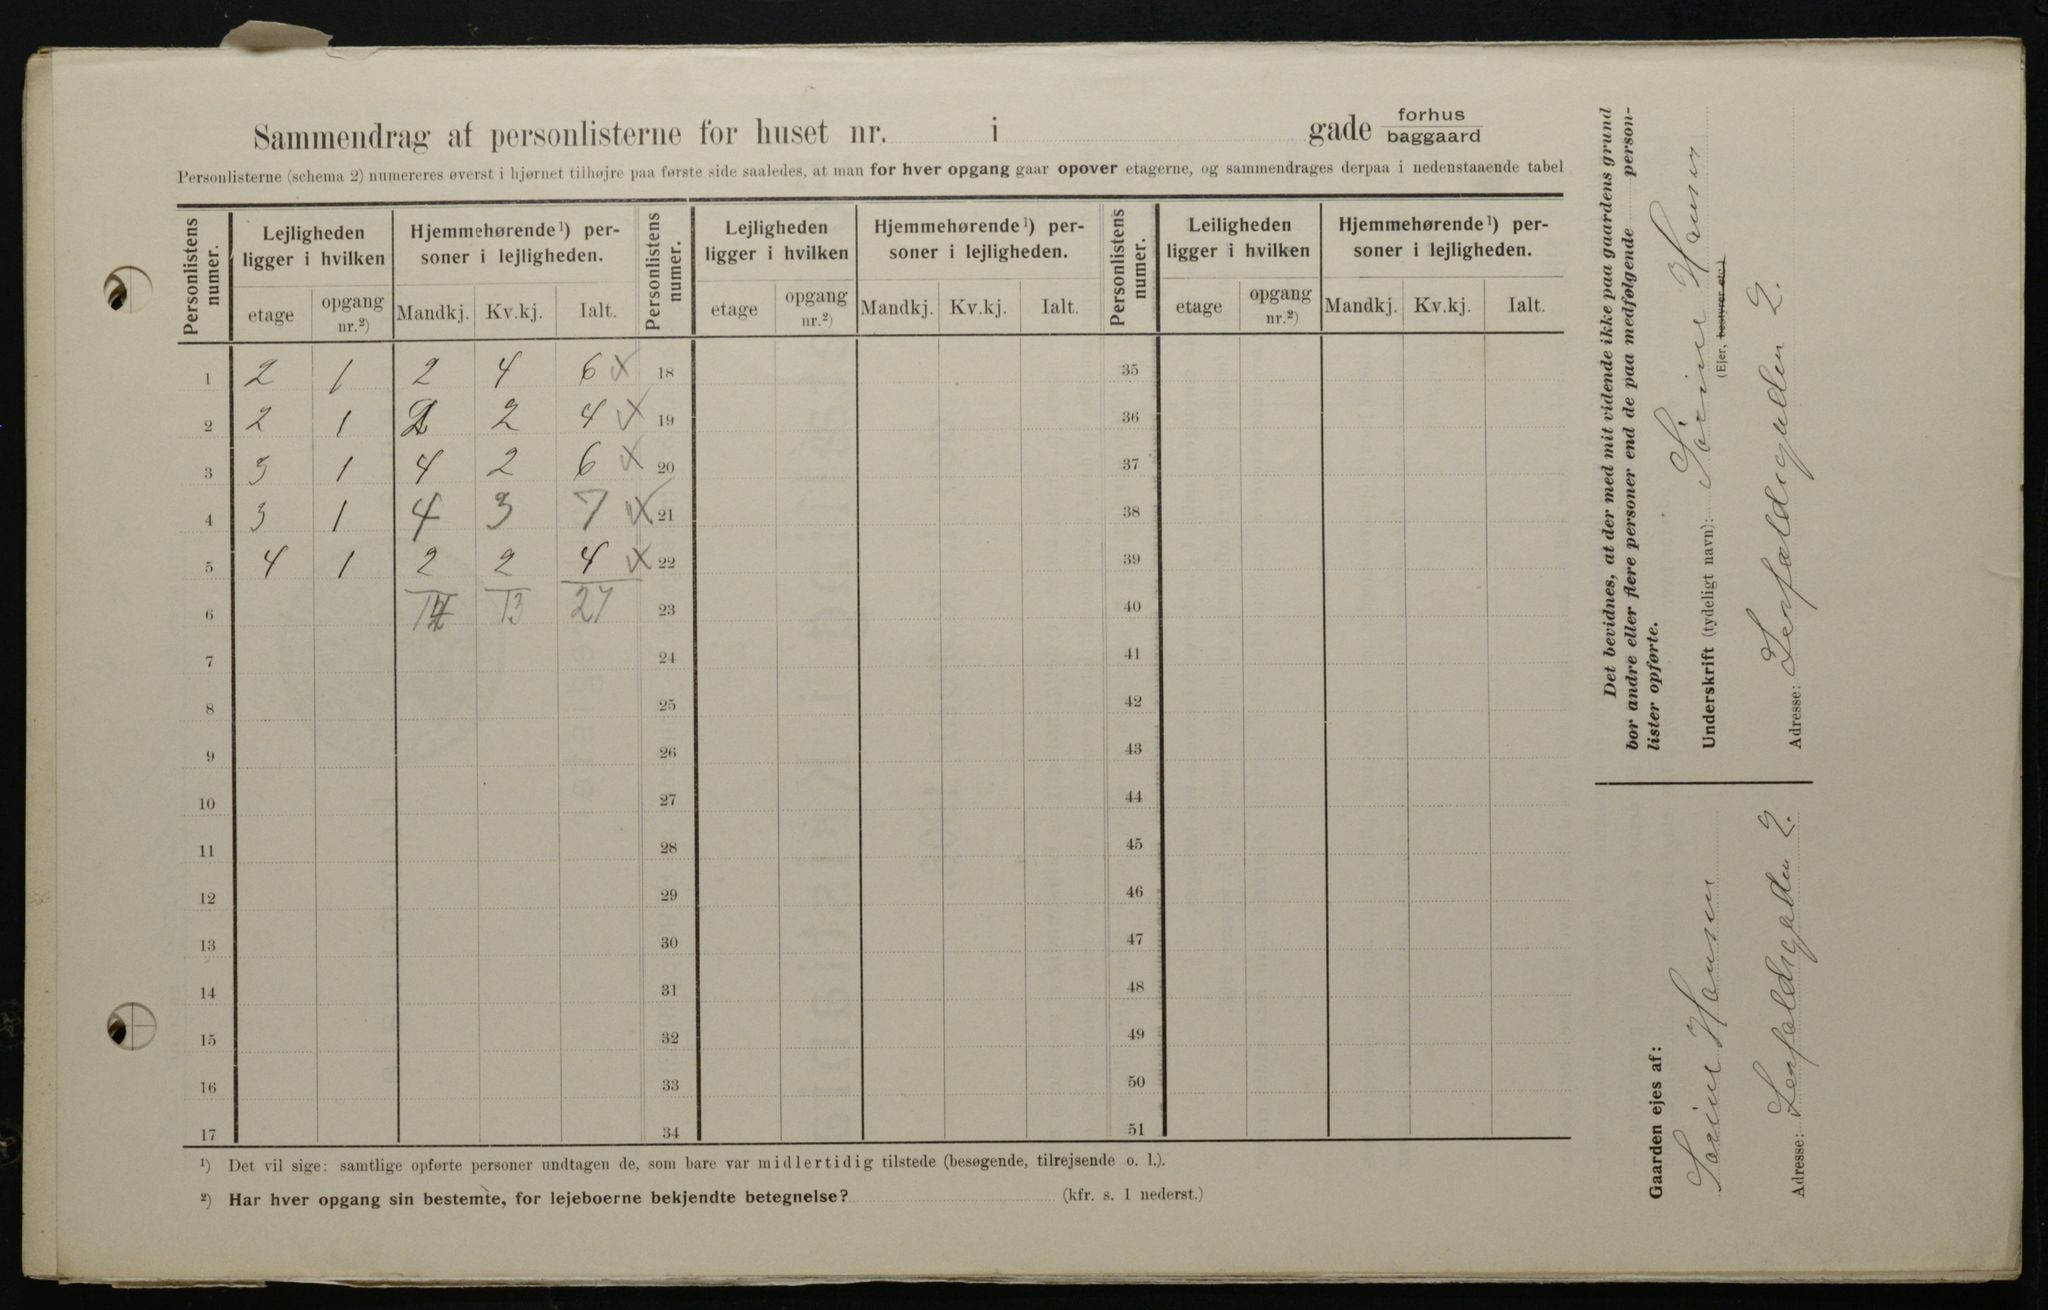 Sammendrag af personlisterne for huset nr. i gade forhus baggaard
Personlisterne (schema 2) numereres øverst i hjørnet tilhøjre paa første side saaledes, at man for hver opgang gaar opover etagerne, og sammendrages derpaa i nedenstaaende tabel
Personlistens numer. Lejligheden ligger i hvilken Hjemmehørende¹) personer i lejligheden. Personlistens numer. Lejligheden ligger i hvilken Hjemmehørende¹) personer i lejligheden. Personlistens numer. Leiligheden ligger i hvilken Hjemmehørende¹) personer i lejligheden.
etage opgang nr.²) Mandkj. Kv.kj. Ialt. etage opgang nr.²) Mandkj. Kv.kj. Ialt. etage opgang nr.²) Mandkj. Kv.kj. Ialt.
1 2 1 2 4 6 x 18 35
2 2 1 2 2 4 x 19 36
3 3 1 4 2 6 x 20 37
4 3 1 4 3 7 x 21 38
5 4 1 2 2 4 x 22 39
6 14 13 27 23 40
7 24 41
8 25 42
9 26 43
10 27 44
11 28 45
12 29 46
13 30 47
14 31 48
15 32 49
16 33 50
17 34 51
¹) Det vil sige: samtlige opførte personer undtagen de, som bare var midlertidig tilstede (besøgende, tilrejsende o. l.).
²) Har hver opgang sin bestemte, for lejeboerne bekjendte betegnelse? (kfr. s. 1 nederst.)
Det bevidnes, at der med mit vidende ikke paa gaardens grund
bor andre eller flere personer end de paa medfølgende person-
lister opførte.
Underskrift (tydeligt navn): Sörine Hansen
(Ejer, bestyrer etc.)
Adresse: 2.
Gaarden ejes af:
Sorine Hansen
Adresse: 2.